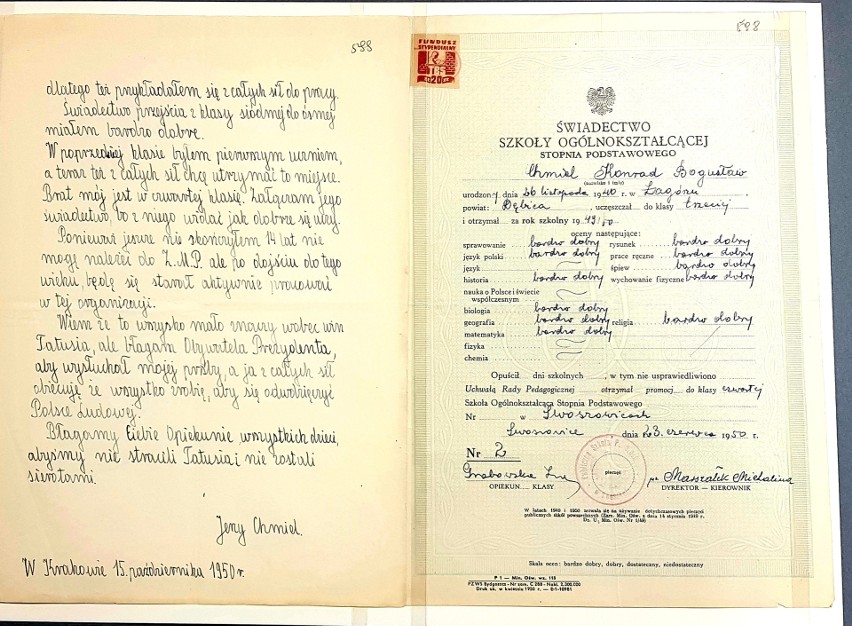 588
dlatego też przykładałem się z całych sił do pracy.
Świadectwo przejścia z klasy siódmej do ósmej
miałem bardzo dobre.
W poprzedniej klasie byłem pierwszym uczniem,
a teraz też z całych sił chcę utrzymać to miejsce.
Brat mój jest w czwartej klasie. Załączam jego
świadectwo, bo z niego widać jak dobrze się uczy.
Ponieważ jeszcze nie skończyłem 14 lat nie
mogę należeć do Z.M.P. ale po dojściu do tego
wieku, będę się starał aktywnie pracować
w tej organizacji.
Wiem że to wszysko mało znaczy wobec win
Tatusia, ale błagam Obywatela Prezydenta,
aby wysłuchał mojej prośby, a ja z całych sił
obiecuję, że wszystko zrobię, aby się odwdzięczyć
Polsce Ludowej.
Błagamy Ciebie Opiekunie wszystkich dzieci,
abyśmy nie stracili Tatusia i nie zostali
sierotami.
Jerzy Chmiel.
W Krakowie 15. października 1950 r.
598
FUNDUSZ
STYPENDIALNY
TBS
ZŁ 20 GR
ŚWIADECTWO
SZKOŁY OGÓLNOKSZTAŁCĄCEJ
STOPNIA PODSTAWOWEGO
Chmiel Konrad Bogusław
(nazwisko i imię)
urodzony dnia 26 listopada 1940 r. w Zagórzu
powiat: Dębica, uczęszczał do klasy trzeciej
i otrzymał za rok szkolny 1949/50
oceny następujące:
sprawowanie bardzo dobry rysunek bardzo dobry
język polski bardzo dobry prace ręczne bardzo dobry
język śpiew bardzo dobry
historia bardzo dobry wychowanie fizyczne bardzo dobry
nauka o Polsce i świecie
współczesnym
biologia bardzo dobry
geografia bardzo dobry religia bardzo dobry
matematyka bardzo dobry
fizyka
chemia
Opuścił dni szkolnych, w tym nie usprawiedliwiono
Uchwałą Rady Pedagogicznej otrzymał promocję do klasy czwartej
Szkoła Ogólnokształcąca Stopnia Podstawowego
Nr w Swoszowicach
Swoszowice dnia 23 czerwca 1950 r.
Nr 2
pieczęć
Grabowska
Marszałek Michalina
OPIEKUN KLASY
DYREKTOR — KIEROWNIK
W latach 1949 i 1950 zezwala się na używanie dotychczasowych pieczęci
publicznych szkół powszechnych
Skala ocen: bardzo dobry, dobry, dostateczny, niedostateczny
P 1 — Min. Ośw. wz. 118